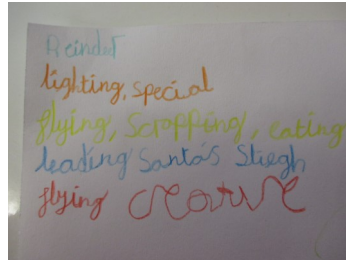 Reinder
lighting, special
flying, Scrapping, eating
leading Santa's Sliegh
flying creature